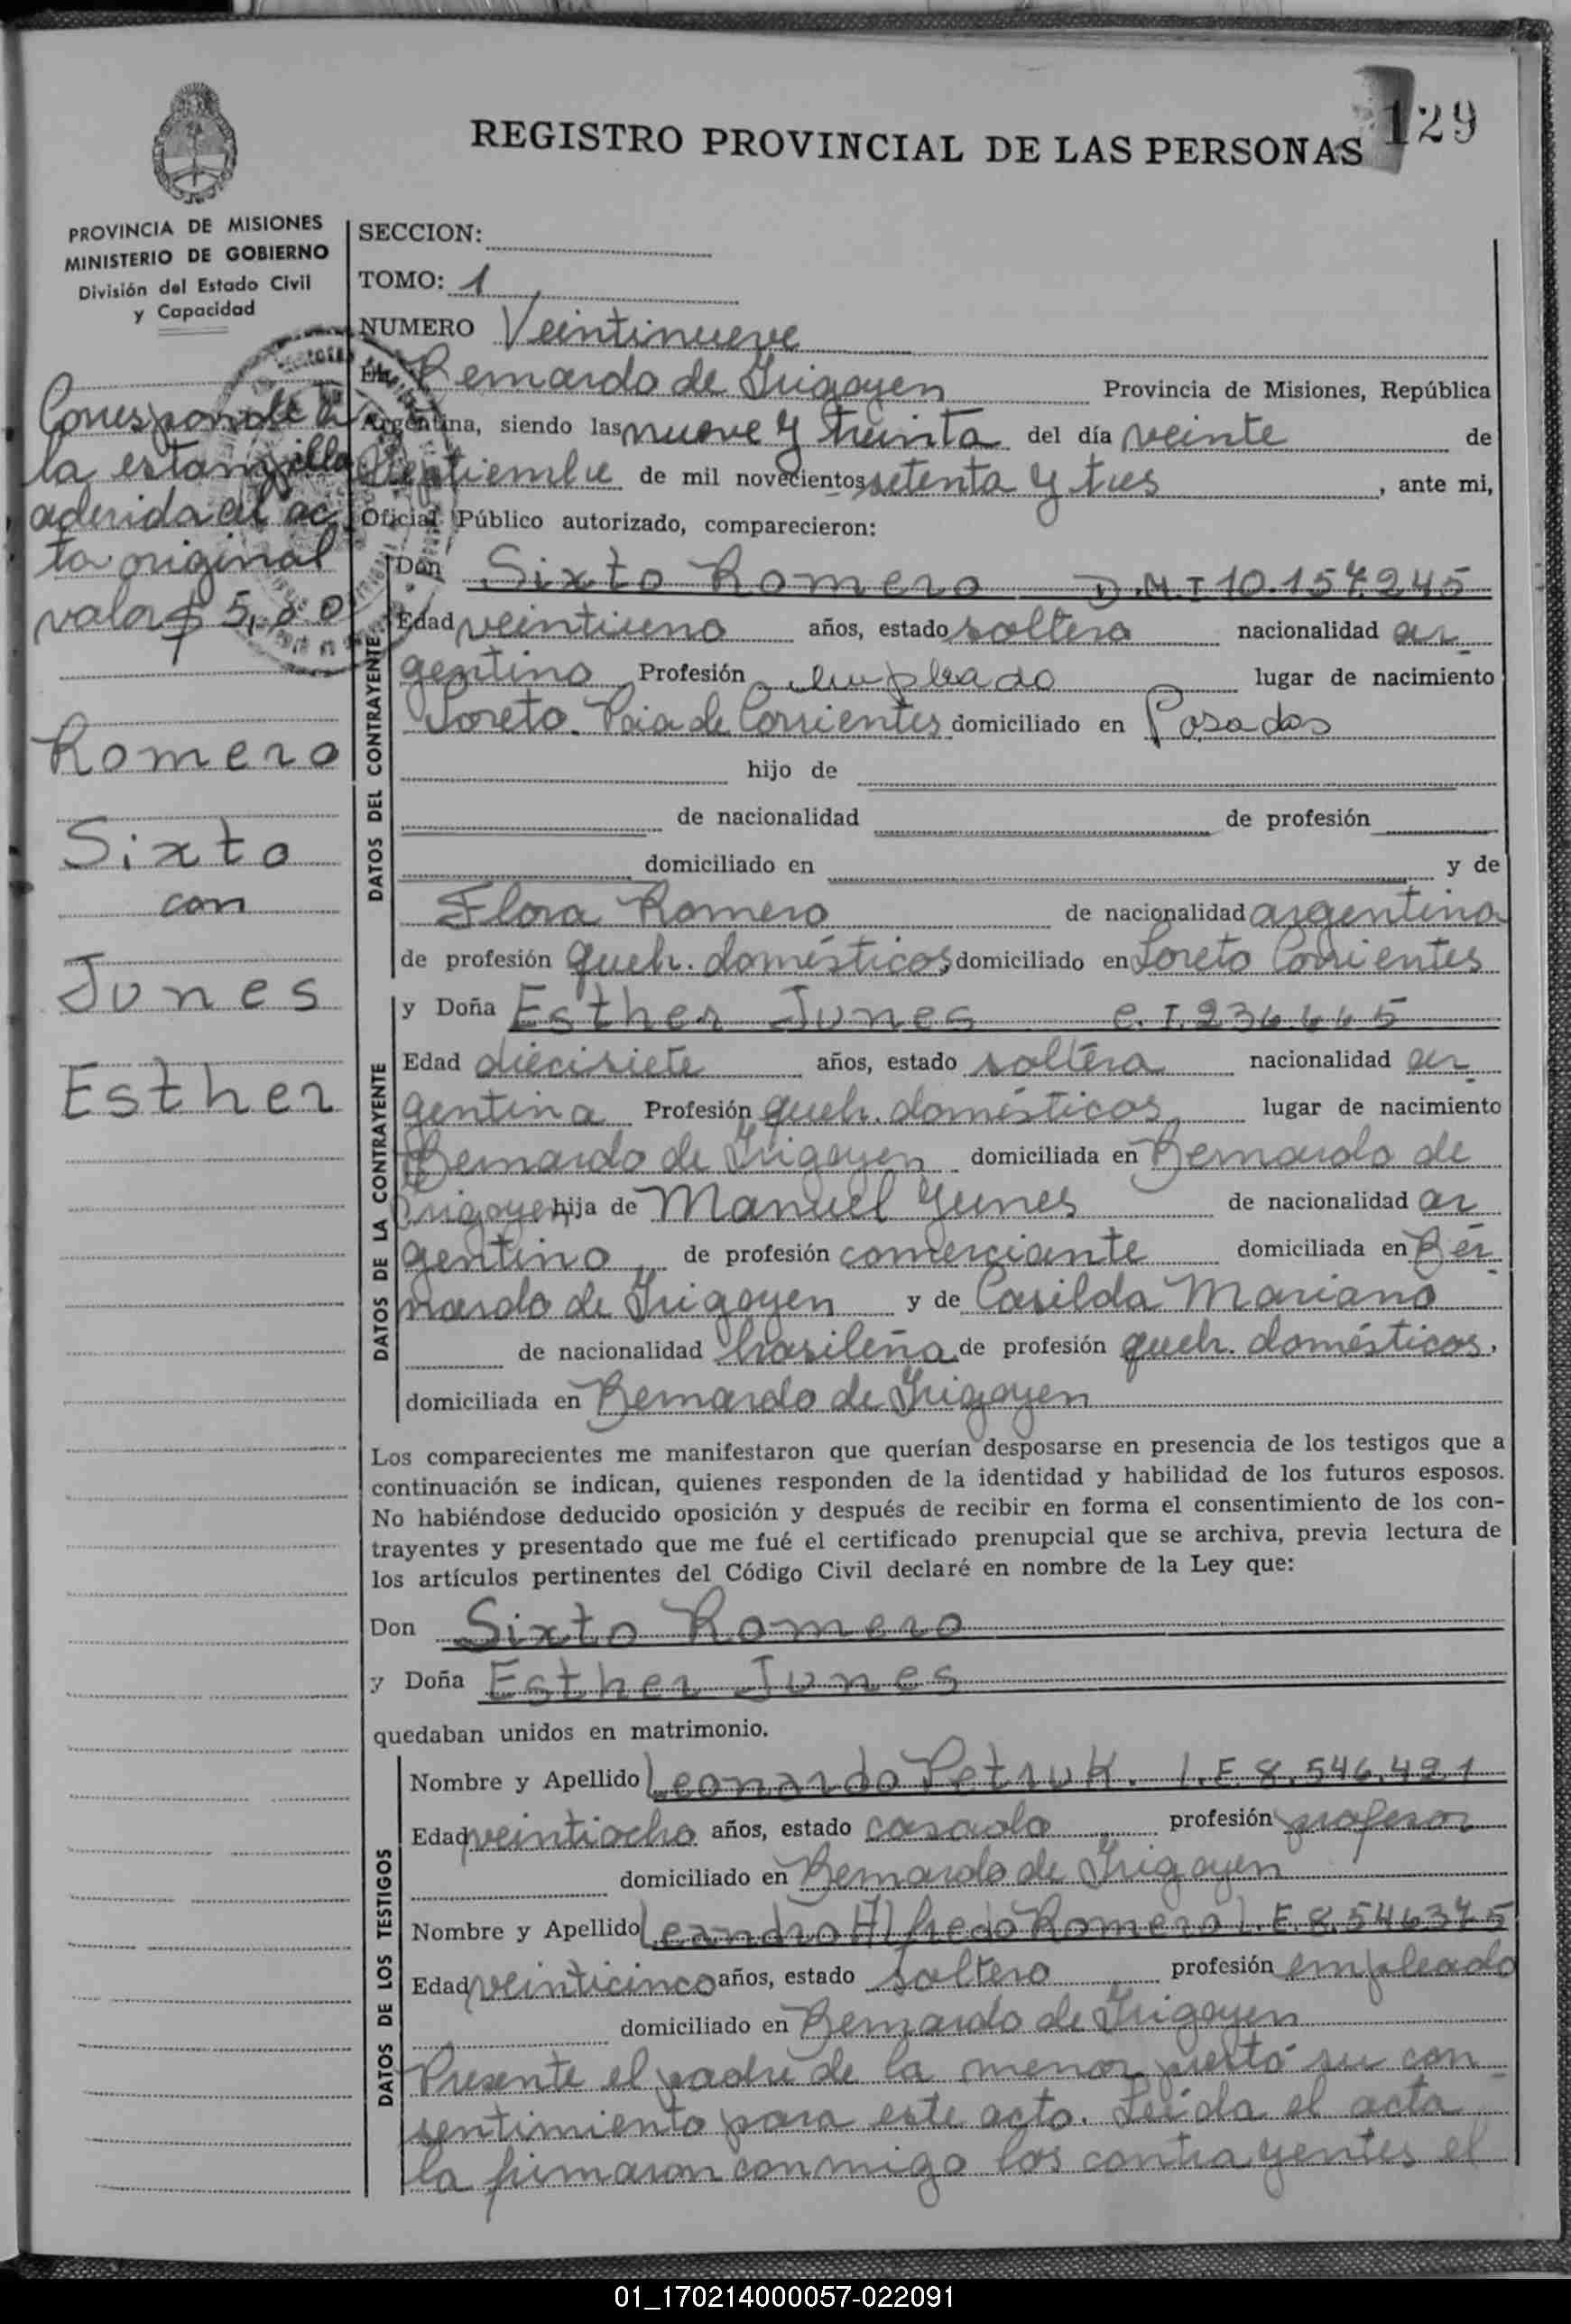 129
REGISTRO PROVINCIAL DE LAS PERSONAS
PROVINCIA DE MISIONES
MINISTERIO DE GOBIERNO
División del Estado Civil
y Capacidad
Corresponde a
la estampilla
aderida al ac
ta original
valor $ 5,00
Romero
Sixto
con
Junes
Esther
SECCION:
TOMO: 1
NUMERO Veintinueve
En Bernardo de Irigoyen Provincia de Misiones, República
Argentina, siendo las nueve y treinta del día veinte de
Septiembre de mil novecientos setenta y tres, ante mi,
Oficial Público autorizado, comparecieron:
DATOS DEL CONTRAYENTE
Don Sixto Romero D.N.I 10.157.245
Edad veintiuno años, estado soltero nacionalidad ar
gentino Profesión empleado lugar de nacimiento
Loreto. Pcia de Corrientes domiciliado en Posadas
hijo de
de nacionalidad de profesión
domiciliado en y de
Flora Romero de nacionalidad argentina
de profesión queh. domésticos, domiciliado en Loreto Corrientes
DATOS DE LA CONTRAYENTE
y Doña Esther Junes C.I. 236.665
Edad diecisiete años, estado soltera nacionalidad ar
gentina Profesión queh. domésticos lugar de nacimiento
Bernardo de Irigoyen domiciliada en Bernardo de
Irigoyen hija de Manuel Yunes de nacionalidad ar
gentino, de profesión comerciante domiciliada en Ber
nardo de Irigoyen y de Casilda Mariano
de nacionalidad brasileña de profesión queh. domésticos,
domiciliada en Bernardo de Irigoyen
Los comparecientes me manifestaron que querían desposarse en presencia de los testigos que a
continuación se indican, quienes responden de la identidad y habilidad de los futuros esposos.
No habiéndose deducido oposición y después de recibir en forma el consentimiento de los con-
trayentes y presentado que me fué el certificado prenupcial que se archiva, previa lectura de
los artículos pertinentes del Código Civil declaré en nombre de la Ley que:
Don Sixto Romero
y Doña Esther Junes
quedaban unidos en matrimonio.
DATOS DE LOS TESTIGOS
Nombre y Apellido Leonardo Petruk. L.E. 8.546.491
Edad veintiocho años, estado casado profesión profesor
domiciliado en Bernardo de Irigoyen
Nombre y Apellido Leandro Alfredo Romero L.E. 8.546375
Edad veinticinco años, estado soltero profesión empleado
domiciliado en Bernardo de Irigoyen
Presente el padre de la menor prestó su con
sentimiento para este acto. Leída el acta
la firmaron conmigo los contrayentes el
01_170214000057-022091